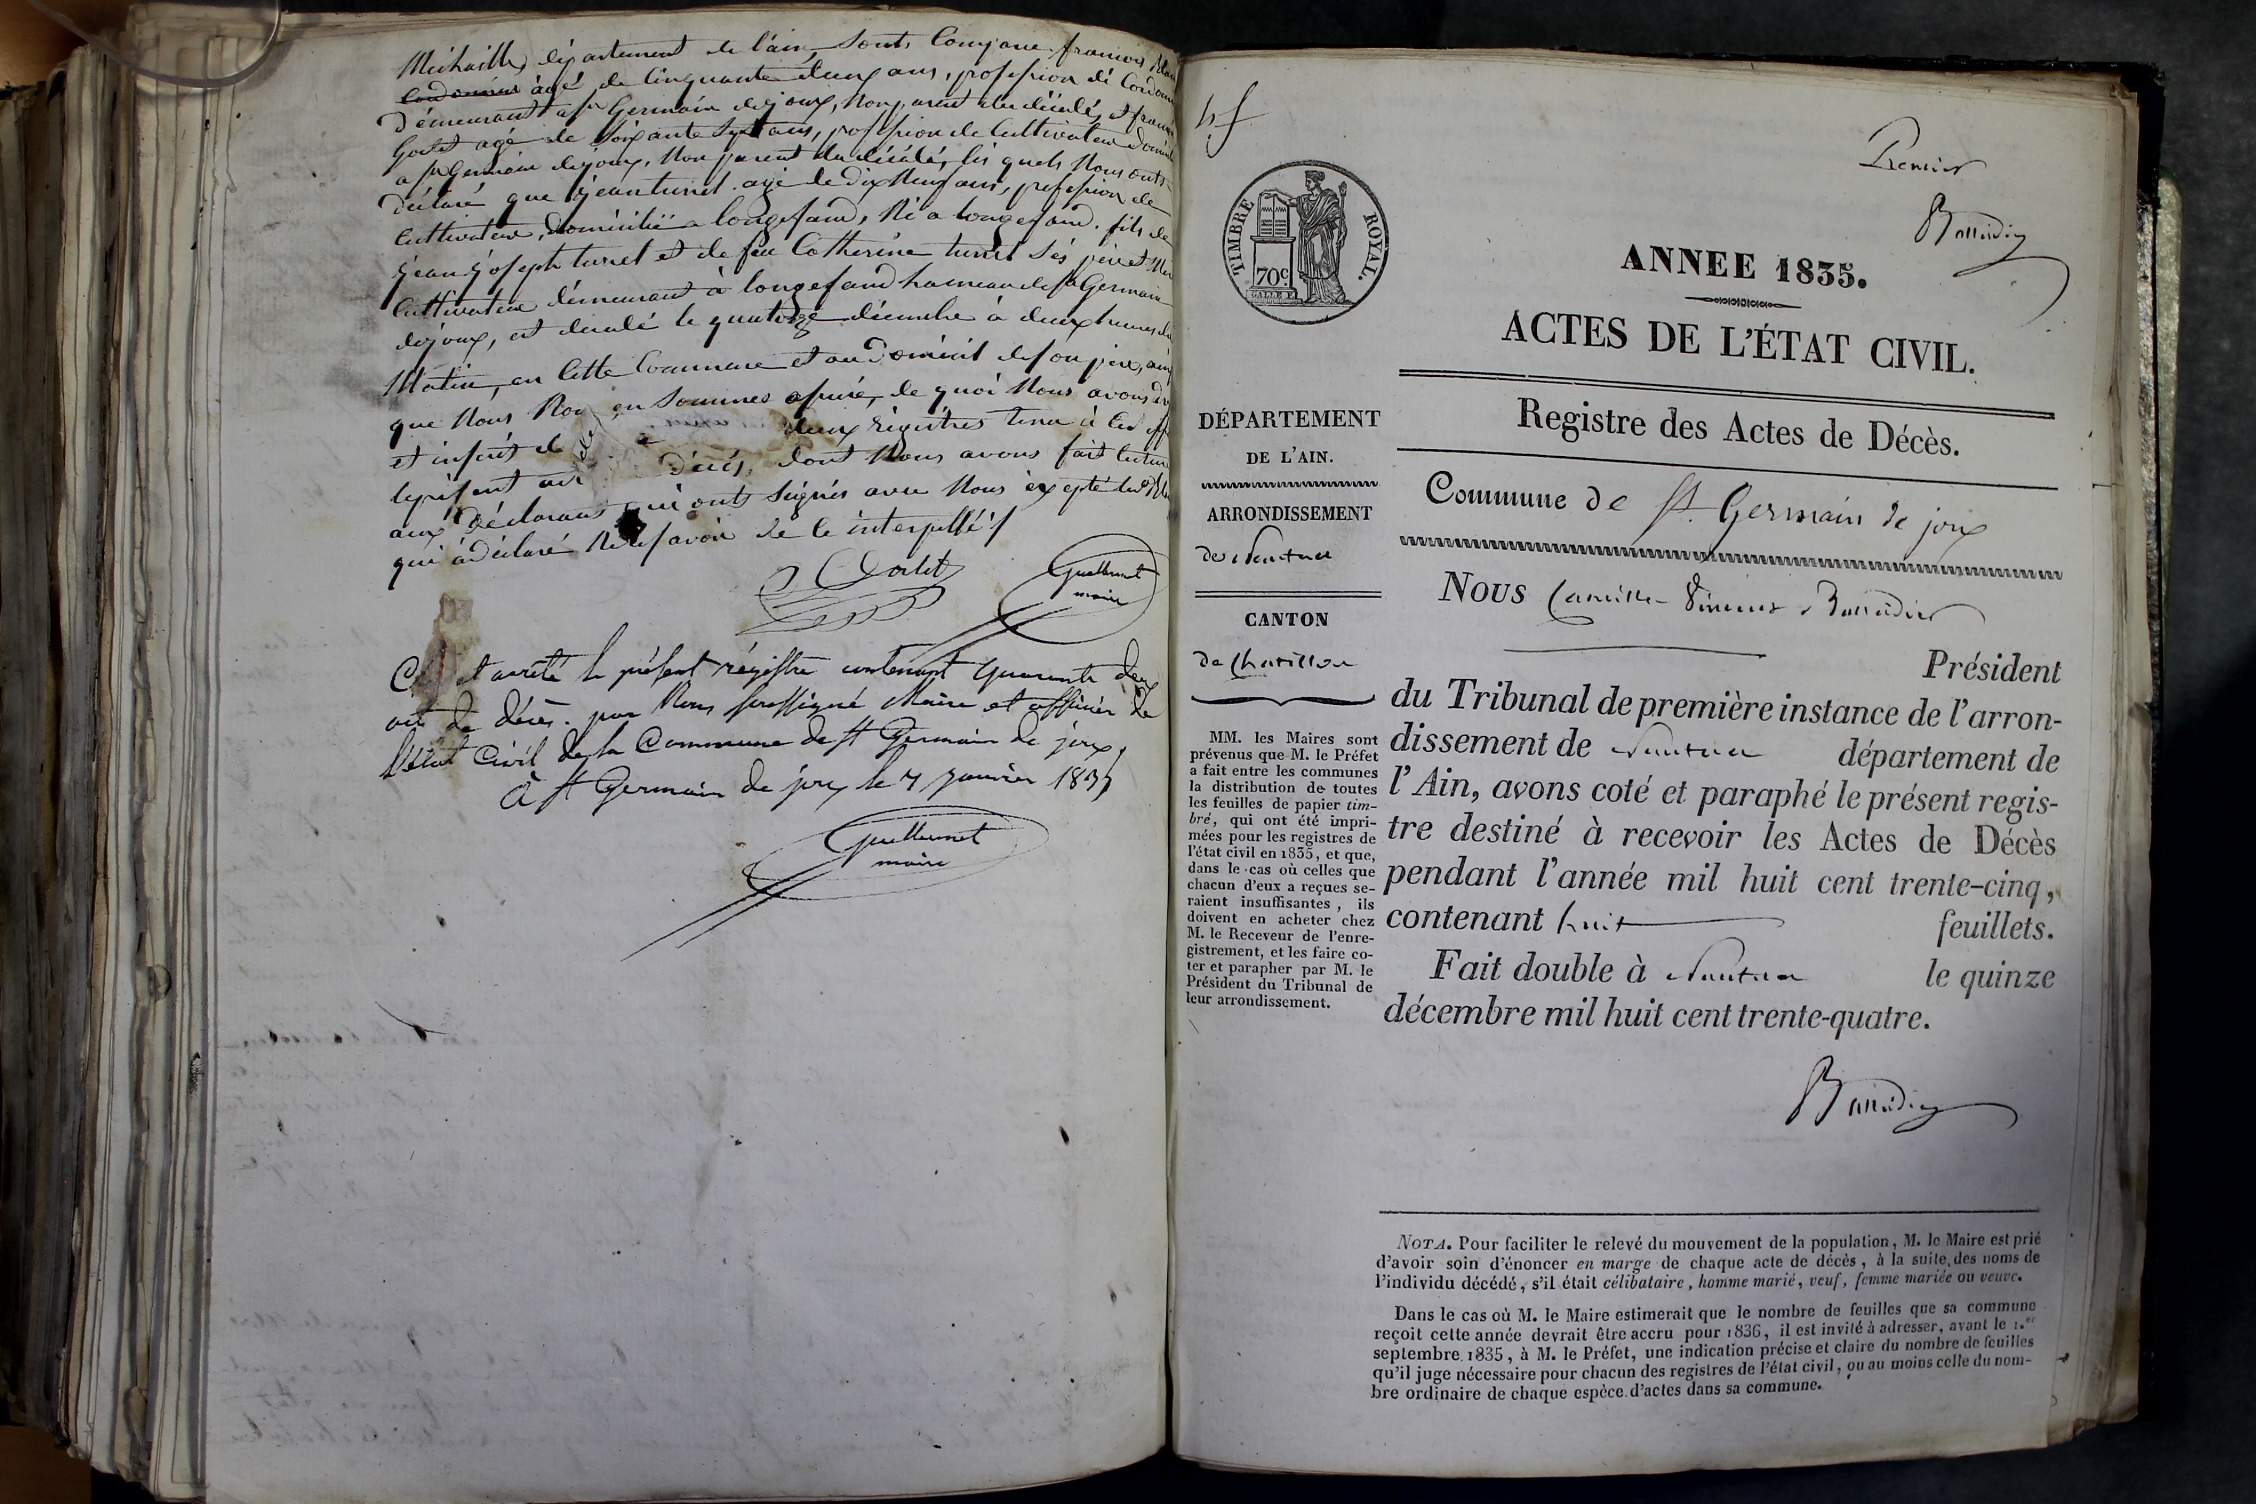 Michaille, département de l'ain, sonts Comparu françois
âgé de Cinquante deux ans, profession de Cordon
Démeurant a St Germain dejoux, Non parent du décédé, et franç
Godet agé de Soixante Sept ans, profession de Cultivateur Domi
a St Germain dejoux, Non parent du décédé, les quels Nous onts
déclaré que jean turrel agé de Dix Neuf ans, profession de
Cultivateur, domicilié a longefand, Né a longefand, fils de
jean joseph turrel et de feu Catherine turrel Sés père et Mer
Cultivateur démeurant à longefand hameau de St Germain
dejoux, est décédé le quatorze décembre à deux heures du
Matin, en Cette Commune et au Domicil de son père, ain
que Nous Nou en Sommes assuré, de quoi Nous avons
et inscrit deux régistres tenu à Cet eff
le présent décés, dont Nous avons fait lecture
aux Déclarants qui onts Signés avec Nous éxcepté
qui à déclaré Ne savoir de Ce interpellé
Godet
Guillermet
maire
arrêté le présent régistre contenant Quarante deux
de décès. par Nous soussigné Maire et officier de
l'état Civil de la Commune de St Germain de joux,
à St Germain de joux le 7 Janvier 1835
Guillermet
maire
Premier
Ballidier
TIMBRE ROYAL.
70c
ANNEE 1835.
ACTES DE L'ÉTAT CIVIL.
Registre des Actes de Décès.
DÉPARTEMENT
DE L'AIN.
ARRONDISSEMENT
de Nantua
CANTON
de Chatillon
MM. les Maires sont
prévenus que M. le Préfet
a fait entre les communes
la distribution de toutes
les feuilles de papier tim-
bré, qui ont été impri-
mées pour les registres de
l'état civil en 1835, et que,
dans le cas où celles que
chacun d'eux a reçues se-
raient insuffisantes, ils
doivent en acheter chez
M. le Receveur de l'enre-
gistrement, et les faire co-
ter et parapher par M. le
Président du Tribunal de
leur arrondissement.
Commune de St. Germain de joux
Nous Camille
Président
du Tribunal de première instance de l'arron-
dissement de Nantua département de
l'Ain, avons coté et paraphé le présent regis-
tre destiné à recevoir les Actes de Décès
pendant l'année mil huit cent trente-cinq,
contenant huit feuillets.
Fait double à Nantua le quinze
décembre mil huit cent trente-quatre.
NOTA. Pour faciliter le relevé du mouvement de la population, M. le Maire est prié
d'avoir soin d'énoncer en marge de chaque acte de décès, à la suite des noms de
l'individu décédé, s'il était célibataire, homme marié, veuf, femme mariée ou veuve.
Dans le cas où M. le Maire estimerait que le nombre de feuilles que sa commune
reçoit cette année devrait être accru pour 1836, il est invité à adresser, avant le 1.er
septembre 1835, à M. le Préfet, une indication précise et claire du nombre de feuilles
qu'il juge nécessaire pour chacun des registres de l'état civil, ou au moins celle du nom-
bre ordinaire de chaque espèce d'actes dans sa commune.